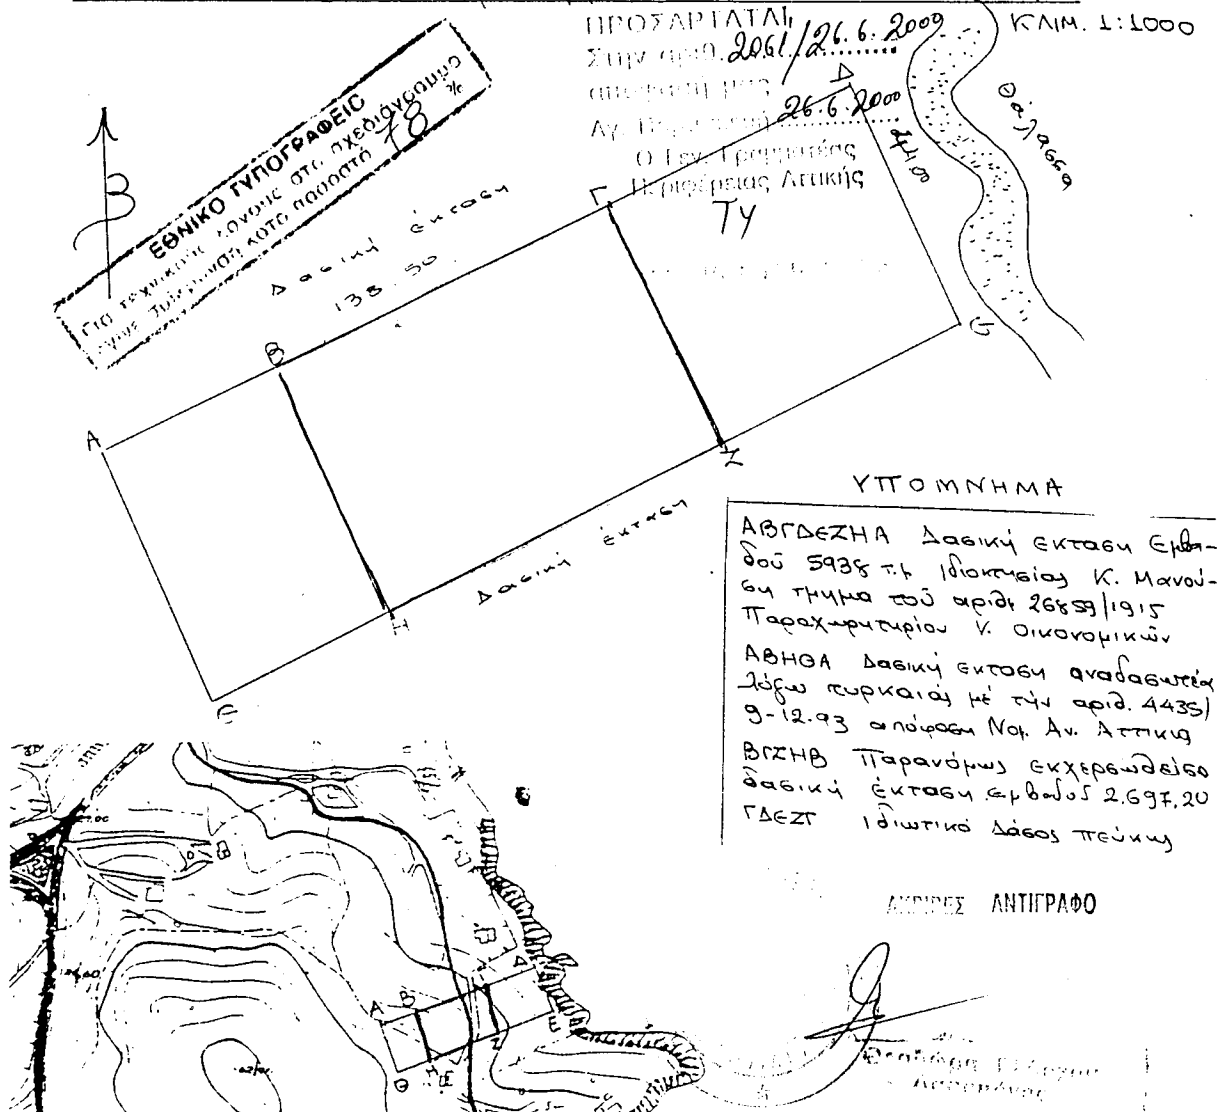 ΚΛΙΜ. 1:1000
ΠΡΟΣΑΡΤΑΤΑΙ
Στην αριθ. 2061/26.6.2000
απόφασή μας
26.6.2000
Ο Γεν. Γραμματέας
Περιφέρειας Αττικής
ΤΥ
ΕΘΝΙΚΟ ΤΥΠΟΓΡΑΦΕΙΟ
Για τεχνικούς λόγους στο σχεδιάγραμμα
έγινε σμίκρυνση κατά ποσοστό 78 %
Β
θάλασσα
Δασική έκταση
138.50
44.00
Α
Β
Γ
Δ
Ε
Ζ
Η
Θ
Δασική έκταση
ΥΠΟΜΝΗΜΑ
ΑΒΓΔΕΖΗΑ Δασική έκταση Εμβα-
δού 5938 τ.μ ιδιοκτησίας Κ. Μανού-
ση τμήμα τού αριθ 26859/1915
Παραχωρητηρίου Υ. Οικονομικών
ΑΒΗΘΑ Δασική έκταση αναδασωτέα
λόγω πυρκαιάς μέ τήν αριθ. 4435/
9-12-93 απόφαση Νομ. Αν. Αττικής
ΒΓΖΗΒ Παρανόμως εκχερσωθείσα
δασική έκταση εμβαδού 2.697,20
ΓΔΕΖΓ ιδιωτικό Δάσος πεύκης
ΑΚΡΙΒΕΣ ΑΝΤΙΓΡΑΦΟ
Α
Β
Δ
Ε
Ζ
Η
Θ